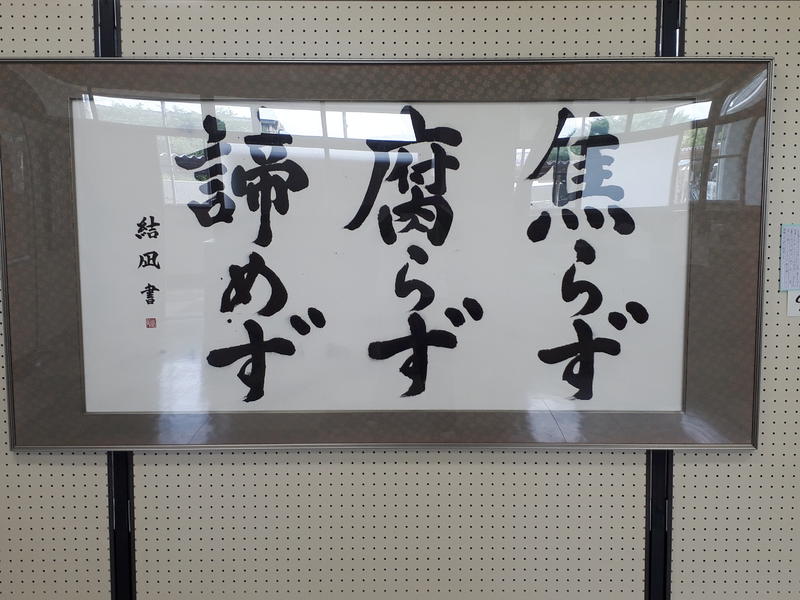 焦らず
腐らず
諦めず
結凪書